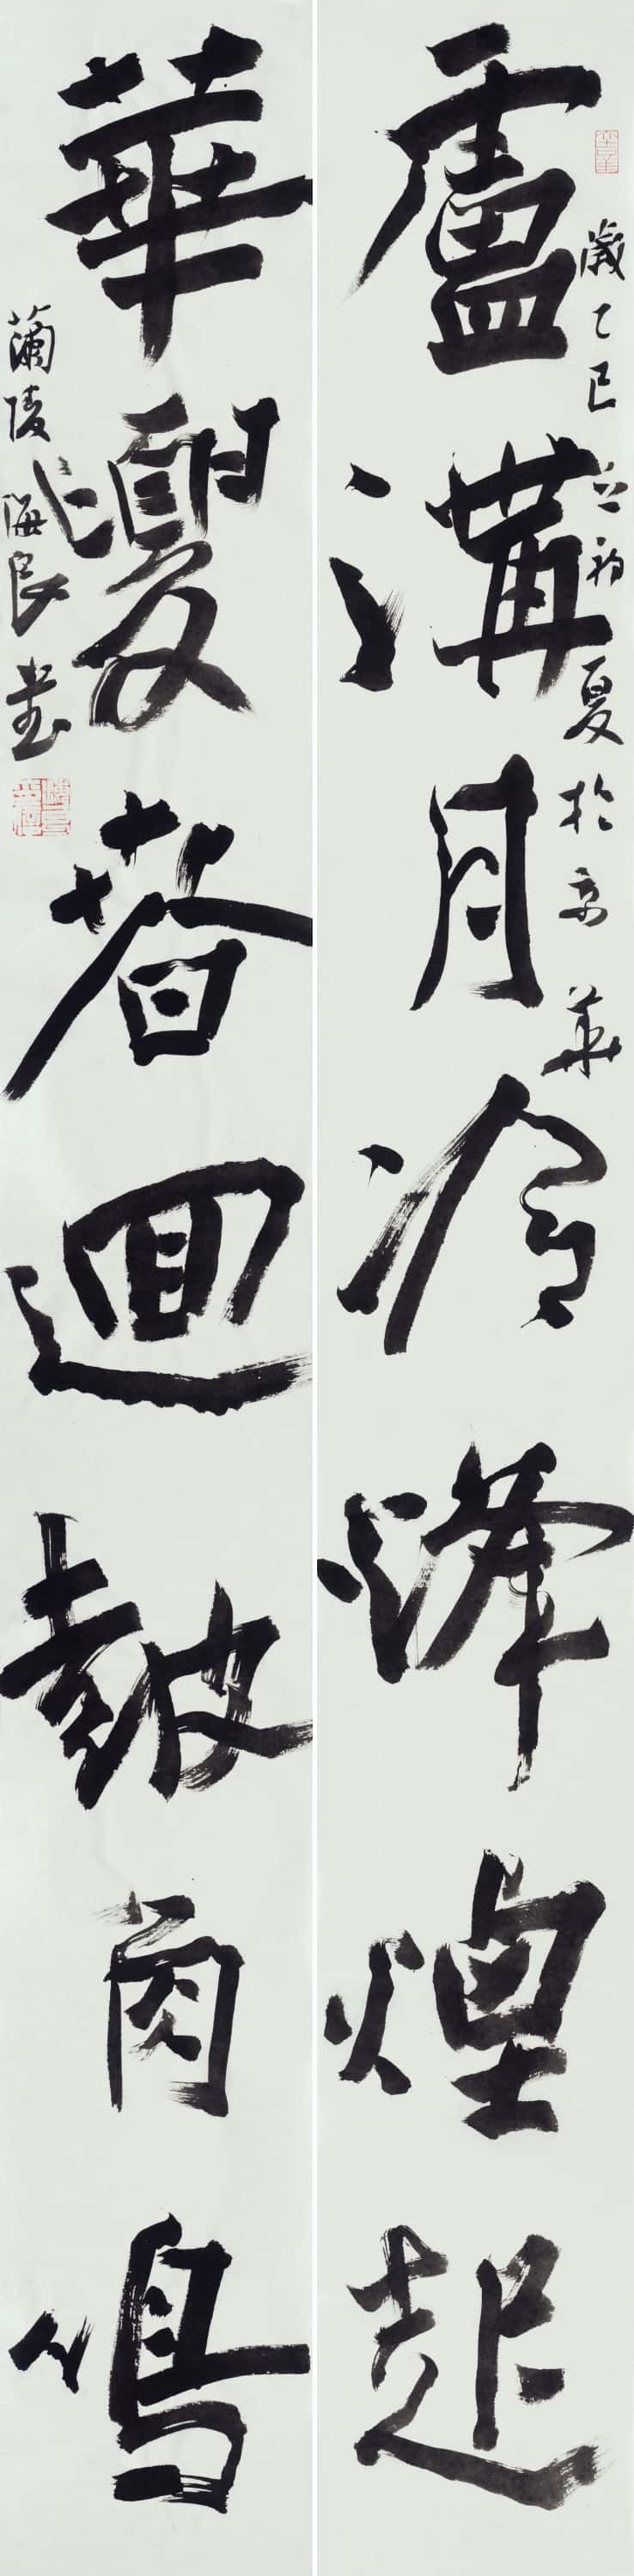 歲乙巳之初夏於京華
盧溝月冷烽煙起
華夏春迴鼓角鳴
蘭陵海良書